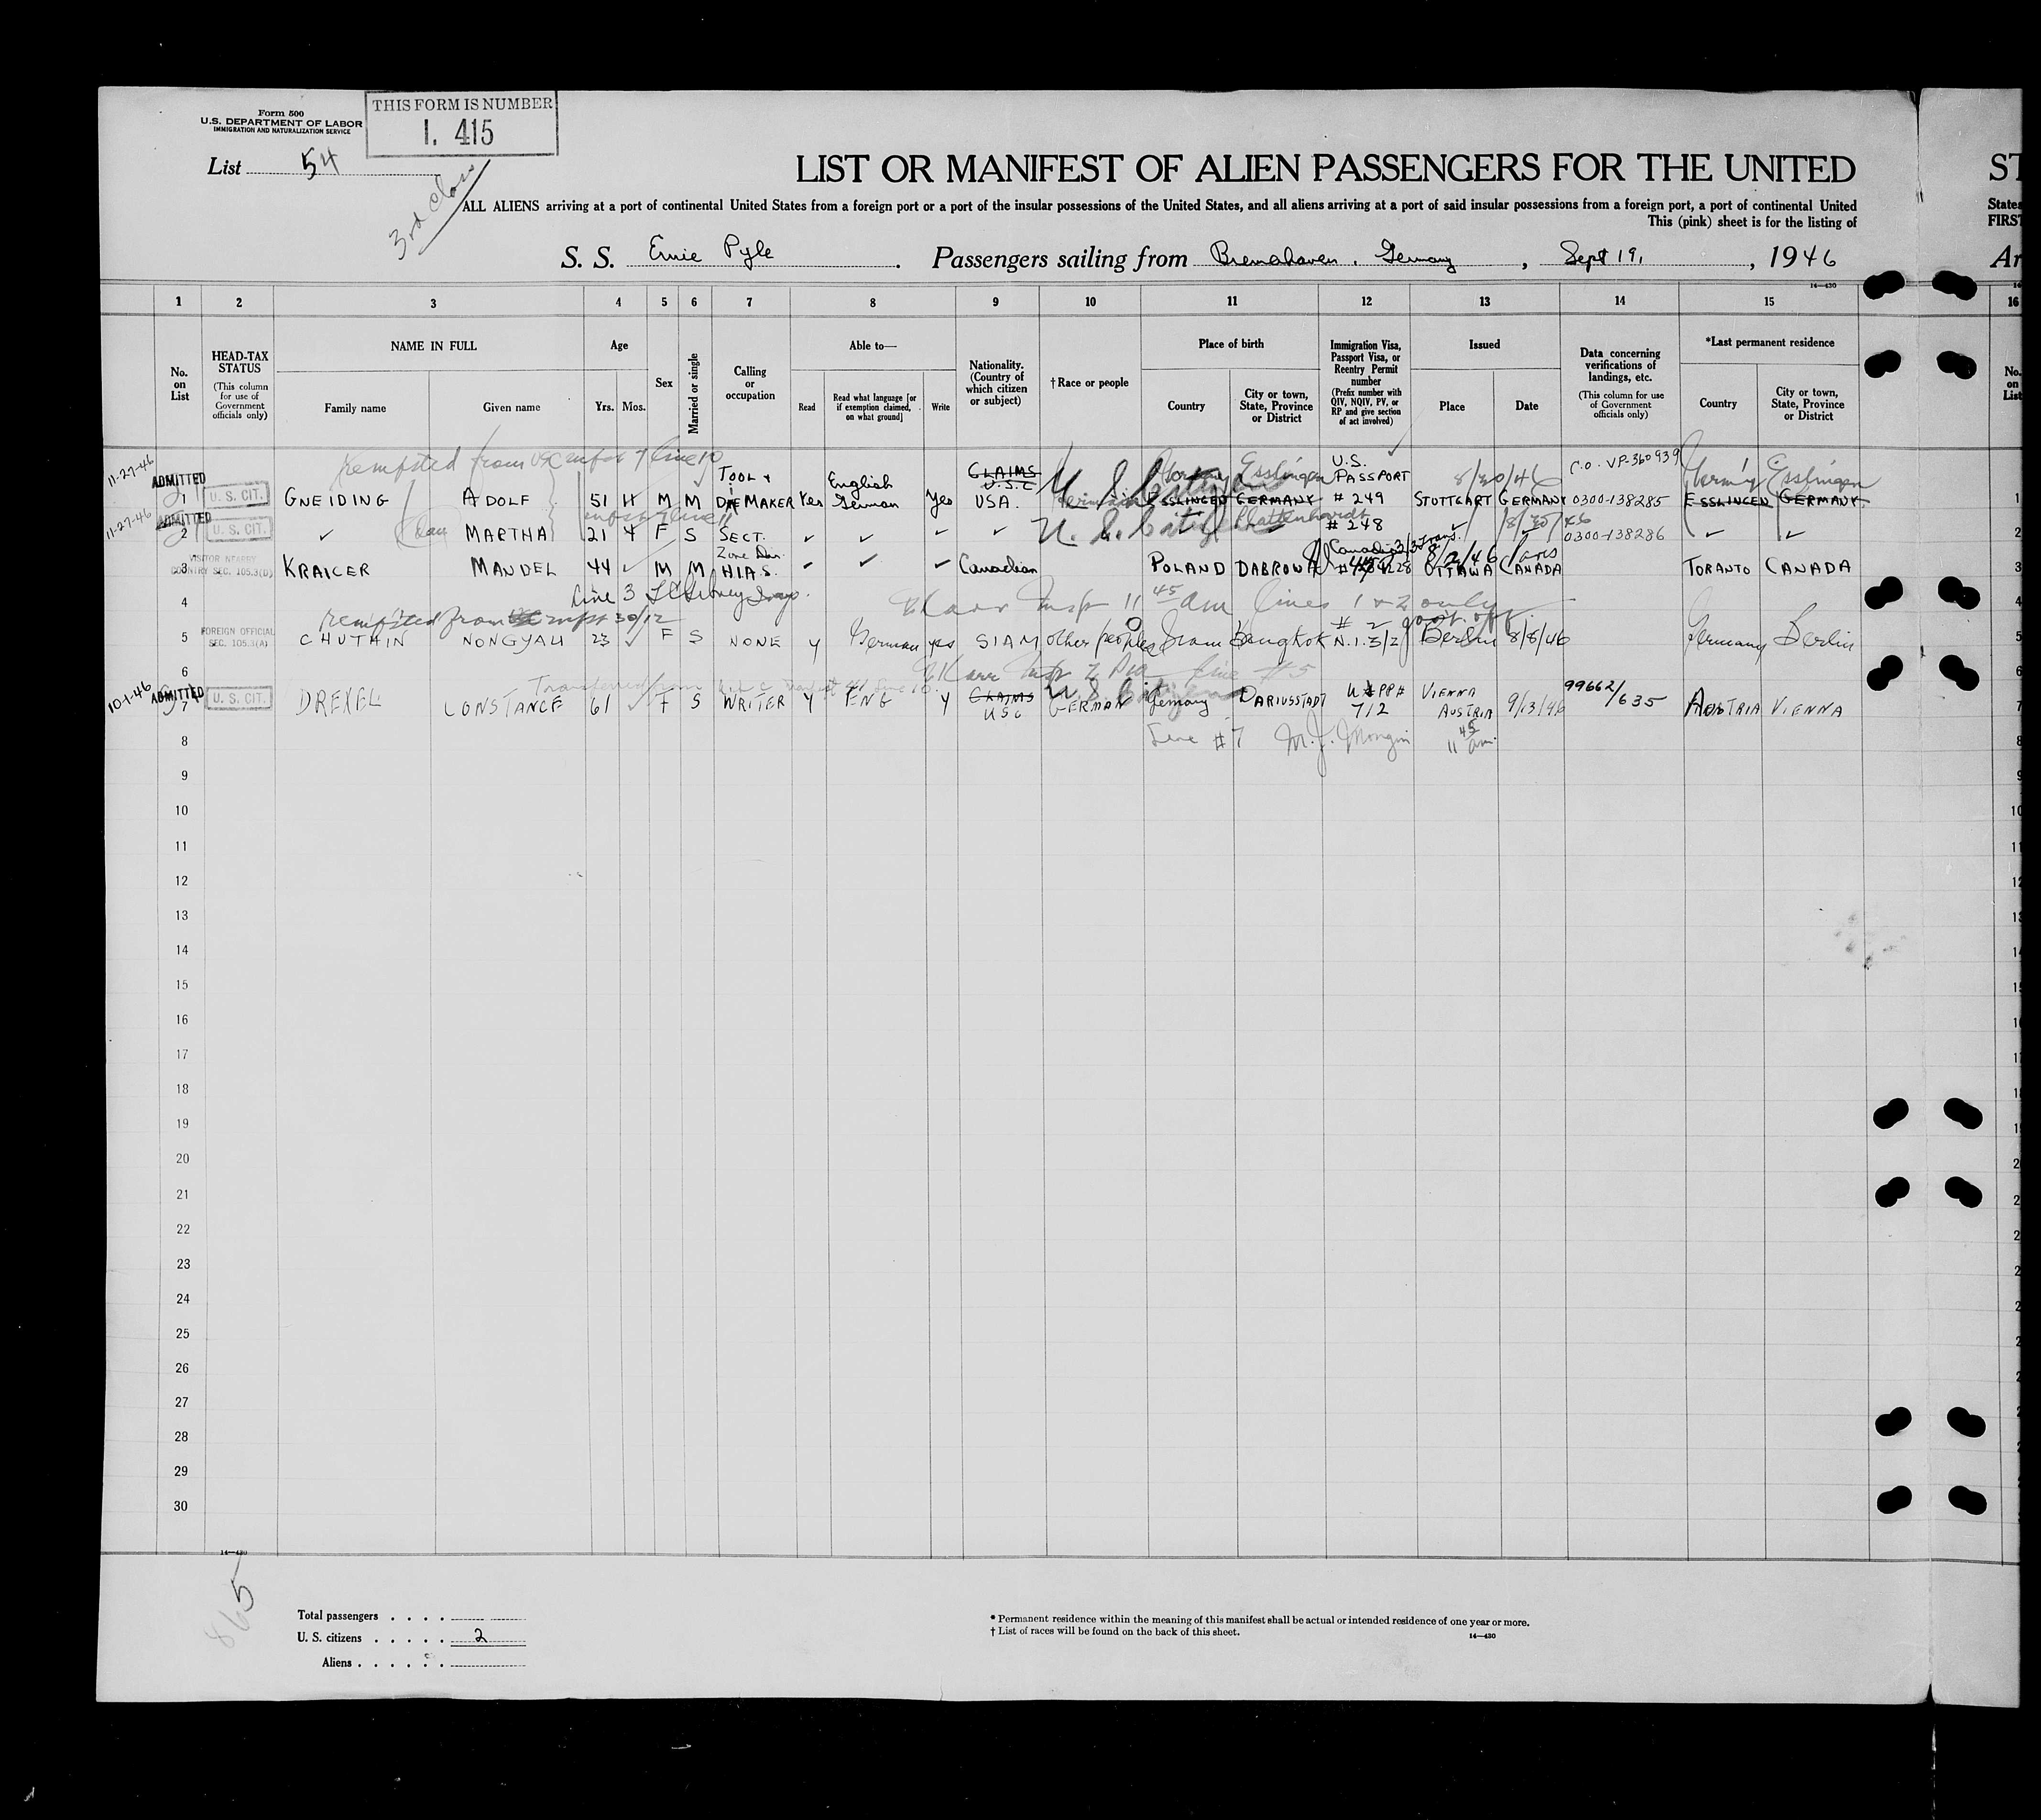 Form 500
U.S. DEPARTMENT OF LABOR
IMMIGRATION AND NATURALIZATION SERVICE
THIS FORM IS NUMBER
I. 415
List 54
3rd Class
LIST OR MANIFEST OF ALIEN PASSENGERS FOR THE UNITED
ST
ALL ALIENS arriving at a port of continental United States from a foreign port or a port of the insular possessions of the United States, and all aliens arriving at a port of said insular possessions from a foreign port, a port of continental United
States
This (pink) sheet is for the listing of
FIRST
S. S. Ernie Pyle. Passengers sailing from Bremahaven, Germany, Sept 19, 1946
Ar
14—430
1 2 3 4 5 6 7 8 9 10 11 12 13 14 15 16
No. on List
HEAD-TAX STATUS
(This column for use of Government officials only)
NAME IN FULL
Family name
Given name
Age
Yrs. Mos.
Sex
Married or single
Calling or occupation
Able to—
Read
Read what language [or if exemption claimed, on what ground]
Write
Nationality. (Country of which citizen or subject)
† Race or people
Place of birth
Country
City or town, State, Province or District
Immigration Visa, Passport Visa, or Reentry Permit number
(Prefix number with QIV, NQIV, PV, or RP and give section of act involved)
Issued
Place
Date
Data concerning verifications of landings, etc.
(This column for use of Government officials only)
*Last permanent residence
Country
City or town, State, Province or District
No. on List
11-27-46 ADMITTED
1 U. S. CIT. GNEIDING ADOLF 51 H M M TOOL + DIE MAKER Yes English German Yes CLAIMS U.S.C USA. U S Citizen Germany Esslingen ESSLINGEN GERMANY U.S. PASSPORT # 249 8/30/46 STUTTGART GERMANY C.O. VP-360939 0300-138285 Germany Esslingen ESSLINGEN GERMANY 1
11-27-46 ADMITTED
2 U. S. CIT. ✓ MARTHA 21 4 F S SECT. ✓ ✓ ✓ ✓ U. S. Citizen # 248 ✓ 8/30/46 0300-138286 ✓ ✓ 2
VISITOR NEARBY COUNTRY SEC. 105.3(D)
3 KRAICER MANDEL 44 ✓ M M Zone Dir. HIAS. ✓ ✓ ✓ Canadian POLAND DABROWA Canadian 8/2/46 Paris OTTAWA CANADA TORANTO CANADA 3
Line 3
4 Karr Insp 11 45 am lines 1 + 2 only
FOREIGN OFFICIAL SEC. 105.3(A)
5 CHUTHIN NONGYAU 23 ✓ F S NONE y German yes SIAM Other peoples Siam Bangkok Berlin 8/8/46 Germany Berlin 5
6 Karr Insp line #5
10-1-46 ADMITTED
7 U. S. CIT. DREXEL CONSTANCE 61 ✓ F S WRITER y ENG y CLAIMS USC U S Citizen GERMAN Germany DARIUSSTADT 712 VIENNA AUSTRIA 9/13/46 99662/635 AUSTRIA VIENNA 7
8 Line #7 M.J. Mongin 11 45 am. 8
9
10
11
12
13
14
15
16
17
18
19
20
21
22
23
24
25
26
27
28
29
30
14—430
865
Total passengers . . . .
U. S. citizens . . . . . 2
Aliens . . . . . .
* Permanent residence within the meaning of this manifest shall be actual or intended residence of one year or more.
† List of races will be found on the back of this sheet.
14—430